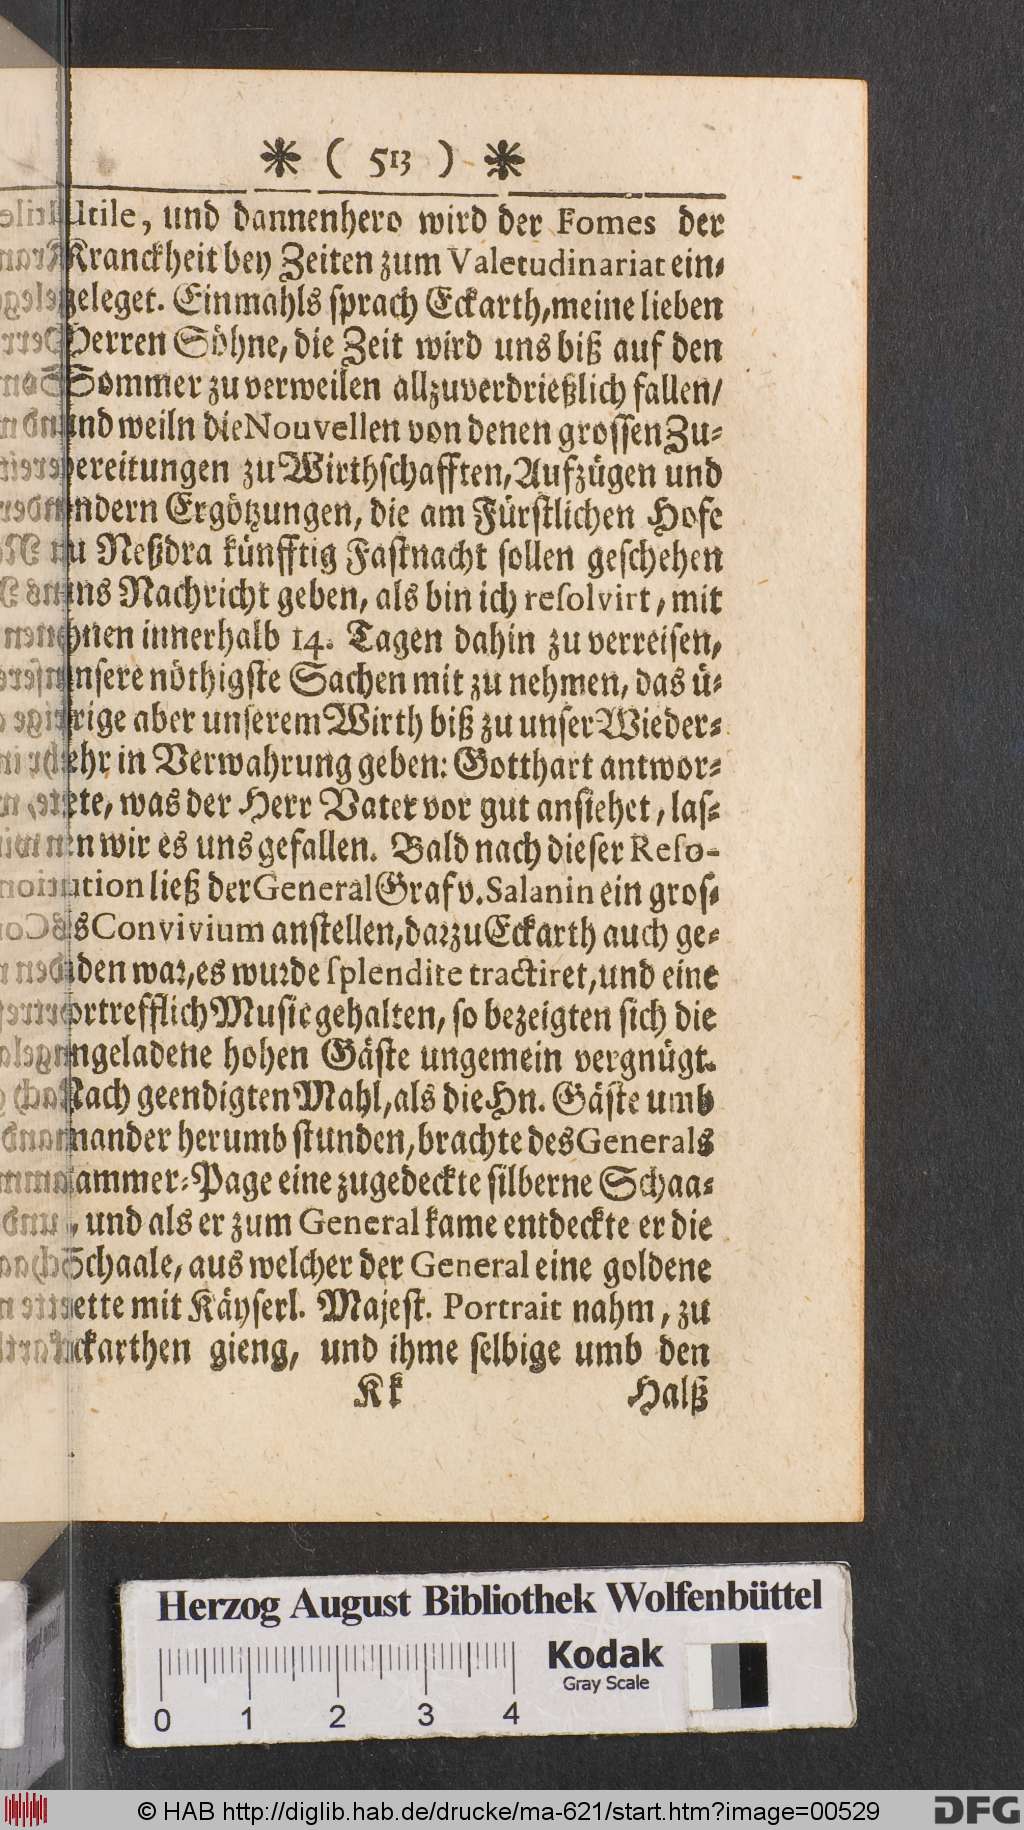 * ( 513 ) *
Utile, und dannenhero wird der Fomes der
Kranckheit bey Zeiten zum Valetudinariat ein-
geleget. Einmahls sprach Eckarth, meine lieben
Herren Söhne, die Zeit wird uns biß auf den
Sommer zu verweilen allzuverdrießlich fallen/
und weiln die Nouvellen von denen grossen Zu-
bereitungen zu Wirthschafften, Aufzügen und
andern Ergötzungen, die am Fürstlichen Hofe
zu Neßdra künfftig Fastnacht sollen geschehen
uns Nachricht geben, als bin ich resolvirt, mit
ihnen innerhalb 14. Tagen dahin zu verreisen,
unsere nöthigste Sachen mit zu nehmen, das ü-
brige aber unserem Wirth biß zu unser Wieder-
kehr in Verwahrung geben: Gotthart antwor-
tete, was der Herr Vater vor gut ansiehet, las-
sen wir es uns gefallen. Bald nach dieser Reso-
lution ließ der General Graf v. Salanin ein gros-
ses Convivium anstellen, darzu Eckarth auch ge-
laden war, es wurde splendite tractiret, und eine
vortrefflich Music gehalten, so bezeigten sich die
eingeladene hohen Gäste ungemein vergnügt.
Nach geendigten Mahl, als die Hn. Gäste umb
einander herumb stunden, brachte des Generals
Cammer-Page eine zugedeckte silberne Schaa-
le, und als er zum General kame entdeckte er die
Schaale, aus welcher der General eine goldene
Kette mit Käyserl. Majest. Portrait nahm, zu
Eckarthen gieng, und ihme selbige umb den
Kk Halß
Herzog August Bibliothek Wolfenbüttel
Kodak
Gray Scale
0 1 2 3 4
© HAB http://diglib.hab.de/drucke/ma-621/start.htm?image=00529
DFG